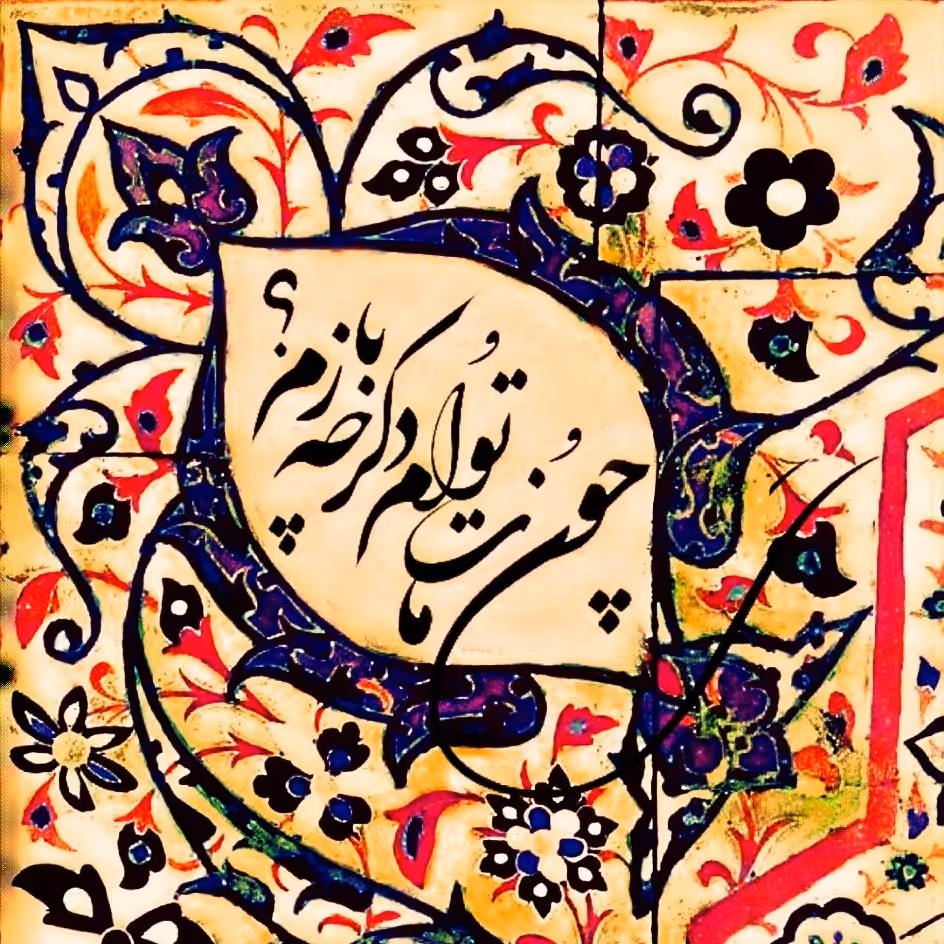 چُون مات تُوام دگر چه بازم؟